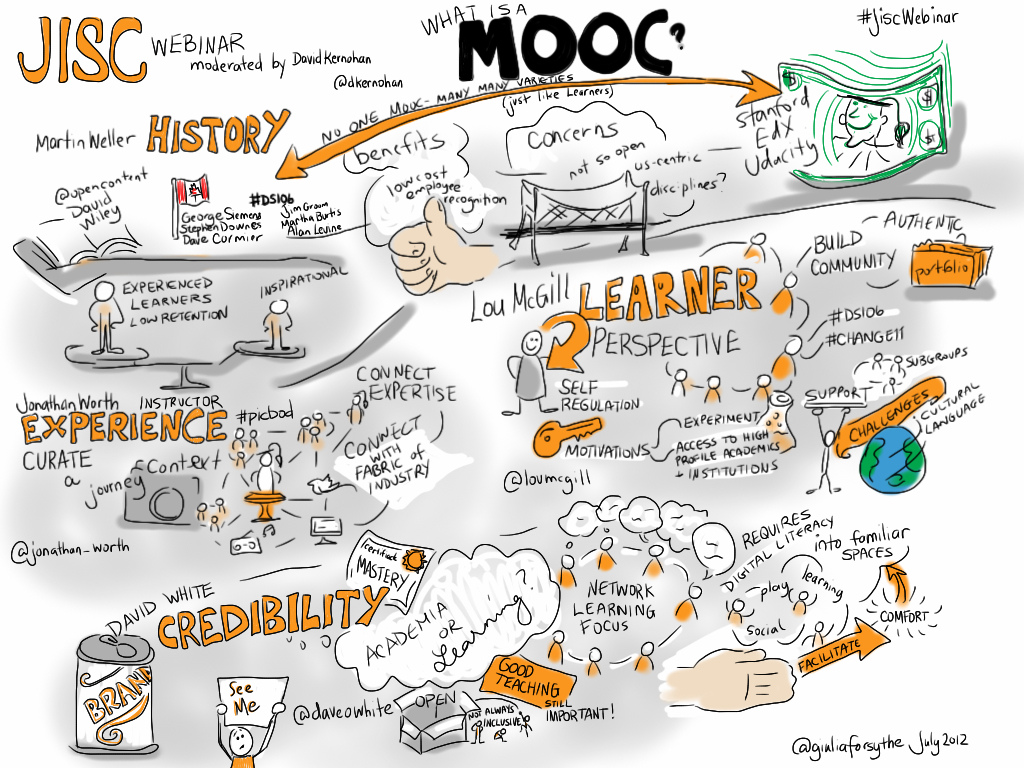 JISC
WEBINAR
moderated by David Kernohan
@dkernohan
WHAT IS A
MOOC?
#JiscWebinar
NO ONE MOOC - MANY MANY VARIETIES
(just like Learners)
Martin Weller
HISTORY
@opencontent
David
Wiley
George Siemens
Stephen Downes
Dave Cormier
#DS106
Jim Groom
Martha Burtis
Alan Levine
benefits
low cost
employee
recognition
concerns
not so open
us-centric
disciplines?
Stanford
EdX
Udacity
$
$
$
EXPERIENCED
LEARNERS
LOW RETENTION
INSPIRATIONAL
INSTRUCTOR
Lou McGill
LEARNER
PERSPECTIVE
BUILD
COMMUNITY
AUTHENTIC
portfolio
#DS106
#CHANGE11
SUBGROUPS
SELF
REGULATION
MOTIVATIONS
EXPERIMENT
ACCESS TO HIGH
PROFILE ACADEMICS
+ INSTITUTIONS
SUPPORT
CHALLENGES
CULTURAL
LANGUAGE
@loumcgill
Jonathan Worth
EXPERIENCE
#picbod
CURATE
a
journey
Context
CONNECT
EXPERTISE
CONNECT
WITH
FABRIC of
INDUSTRY
@jonathan_worth
DAVID WHITE
CREDIBILITY
certificate
MASTERY
ACADEMIA
OR
Learning
?
BRAND
See
Me
@daveowhite
OPEN
NOT ALWAYS
INCLUSIVE
GOOD
TEACHING
STILL
IMPORTANT!
NETWORK
LEARNING
FOCUS
REQUIRES
DIGITAL LITERACY
play
learning
social
into familiar
SPACES
COMFORT
FACILITATE
@giuliaforsythe July 2012